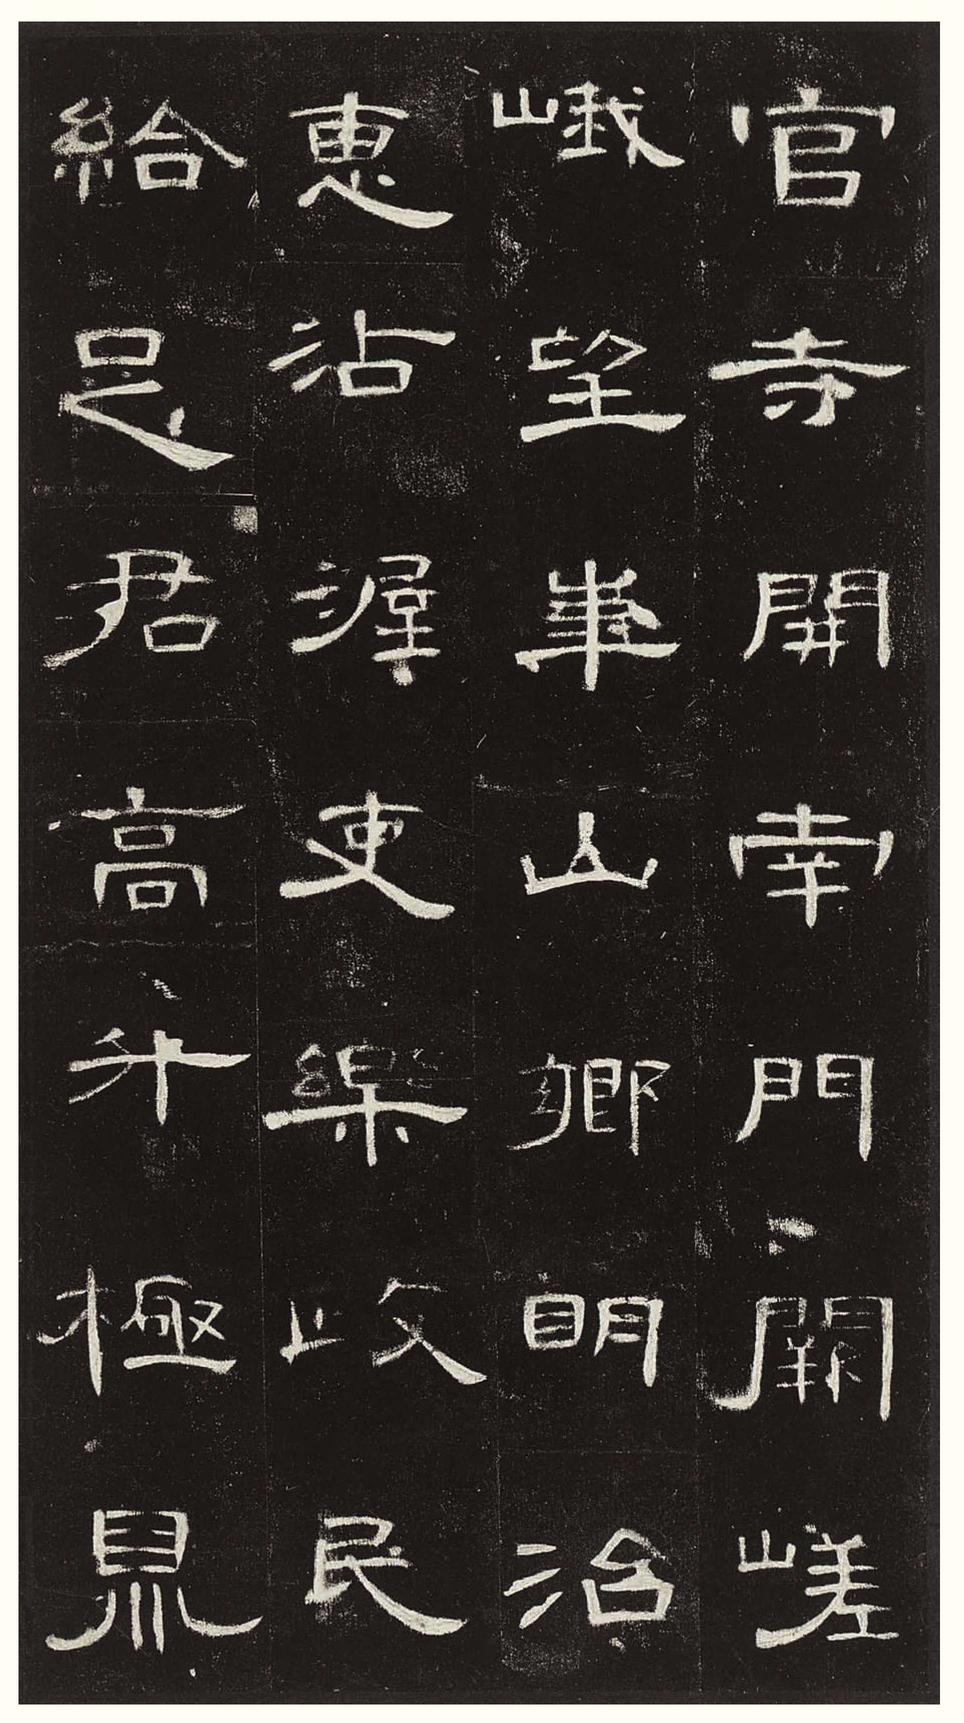 官寺開南門闕嵯
峨望華山鄉明治
惠沾渥吏樂政民
給足君高升極鼎